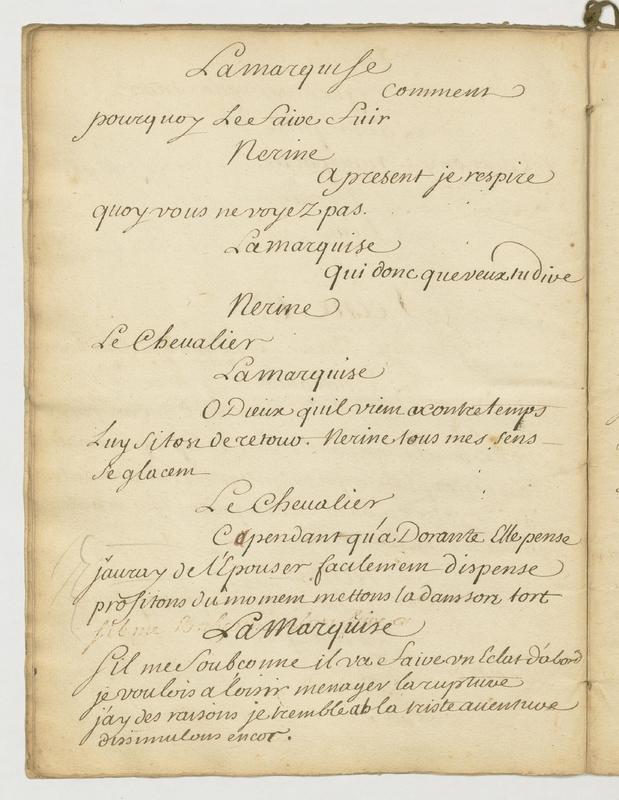 Lamarquise
comment
pourquoy Le faire fuir
Nerine
apresent je respire
quoy vous ne voyez pas.
Lamarquise
qui donc que veux tu dire
Nerine
Le Chevalier
Lamarquise
O Dieux qu'il vient a contretemps
Luy sitost de retour. Nerine tous mes sens
se glacent
Le Chevalier
Cependant qu'a Dorante Elle pense
j'auray de l'Epouser facilement dispense
profitons du moment mettons la dans son tort
LaMarquise
s'il me soubconne il va faire un Eclat d'abord
je voulois a loisir menager la rupture
j'ay des raisons je tremble ah la triste auenture
dissimulons encor.